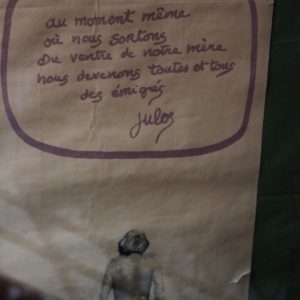 au moment même
où nous sortons
Du ventre de notre mère
nous devenons toutes et tous
des émigrés
Julos